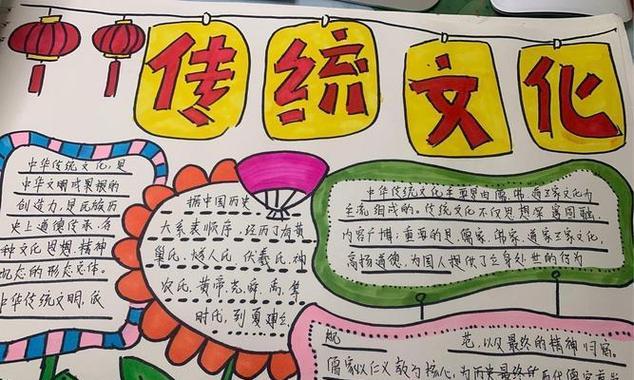 传统文化
中华传统文化,是
中华文明成果根的
创造力,是民族历
史上道德传承,各
种文化思想、精神
观态的形态总体。
中华传统文明,依
据中国历史
大系表顺序,经历了有巢
巢氏、燧人氏、伏羲氏、神
农氏、黄帝、尧、舜、禹、等
时代,到夏建立
中华传统文化主要是由儒、佛、道三家文化为
主流组成的。传统文化不仅思想深邃圆融,
内容广博;重要的是,儒家、佛家、道家三家文化,
高扬道德,为国人提供了立身处世的行为
规 范,以及最终的精神归宿。
儒家以仁义教为核心